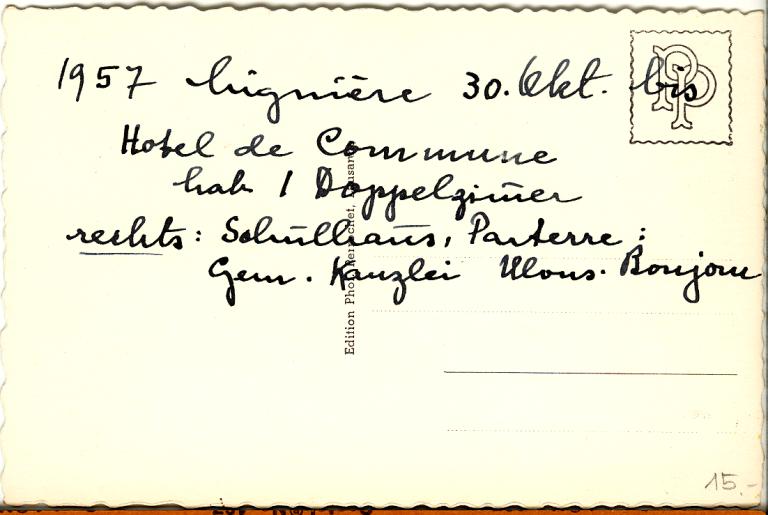 1957 Lignière 30. Okt. bis
Hotel de Commune
hab 1 Doppelzimmer
rechts: Schulhaus, Parterre:
Gem. Kanzlei Mons. Bonjour
Edition Phot. Perrochet, Lausanne
PP
15.-